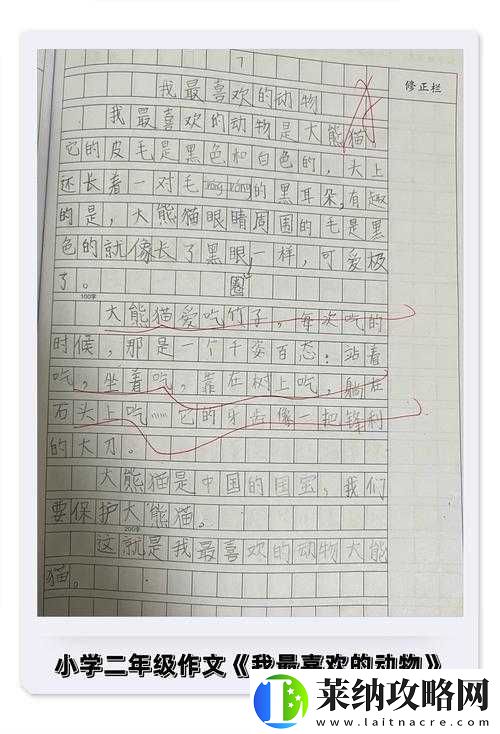 7
修正栏
我最喜欢的动物
我最喜欢的动物是大熊猫
它的皮毛是黑色和白色的，头上
还长着一对毛róng róng的黑耳朵，有趣
的是，大熊猫眼睛周围的毛是黑
色的就像长了黑眼一样，可爱极
圈
了。
100字
大熊猫爱吃竹子，每次吃的
时候，那是一个千姿百态：站着
吃，坐着吃，靠在树上吃，躺在
石头上吃……它的牙齿像一把锋利
的大刀。
大熊猫是中国的国宝，我们
要保护大熊猫。
200字
这就是我最喜欢的动物大熊
猫。
小学二年级作文《我最喜欢的动物》
莱纳攻略网
www.laitnacre.com